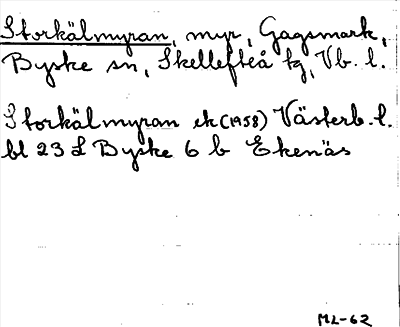 Storkälmyran, myr, Gagsmark,
Byske sn, Skellefteå tg, Vb. l.
Storkälmyran ek (1958) Västerb. l.
bl 23 L Byske 6 b Ekenäs
ML-62